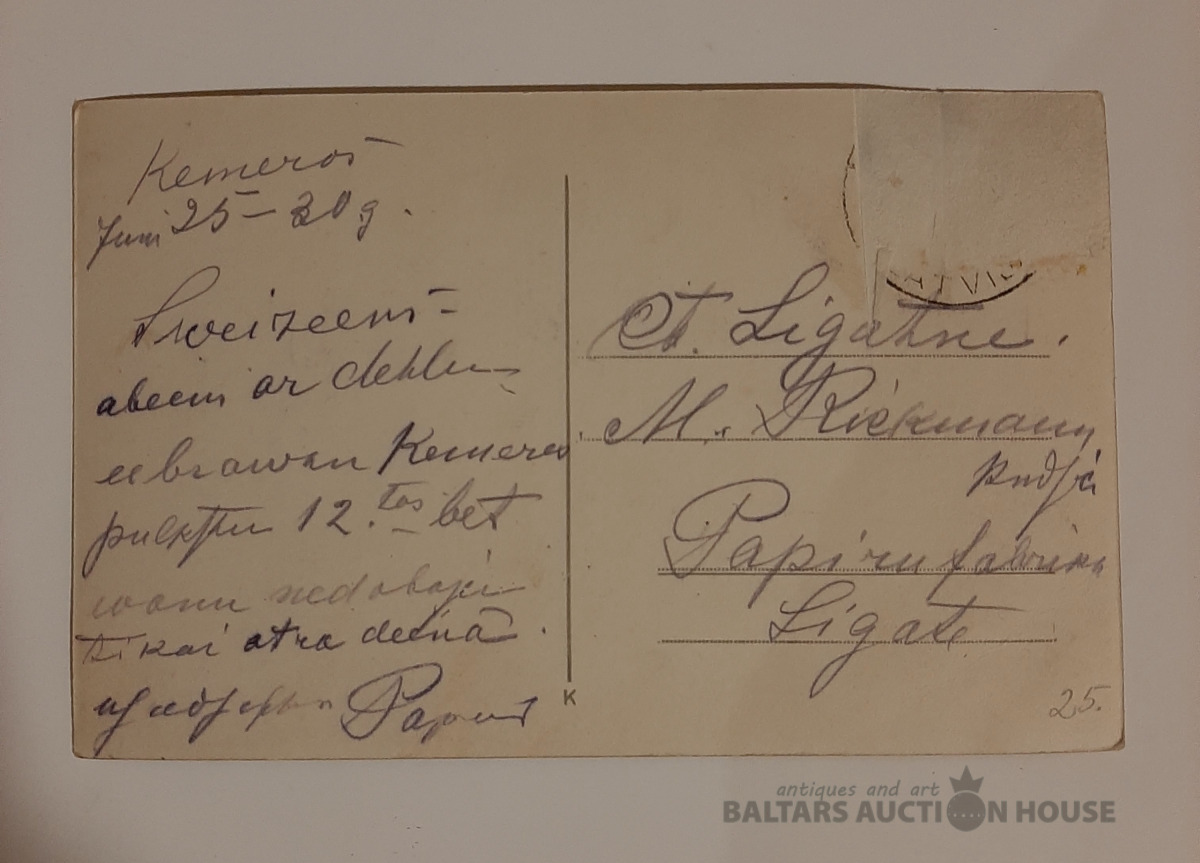 Kemeros
Juni 25 – 30 g.
Sweizeens
abeem ar dehlu
eebrawau Kemeros
pulksten 12.tos bet
wanu nedabuji
tikai otra deenā
Papus
ATVI
St. Ligatne.
M. Riekmann
kundse
Papiru fabrika
Ligate
K
25.
antiques and art
BALTARS AUCTION HOUSE